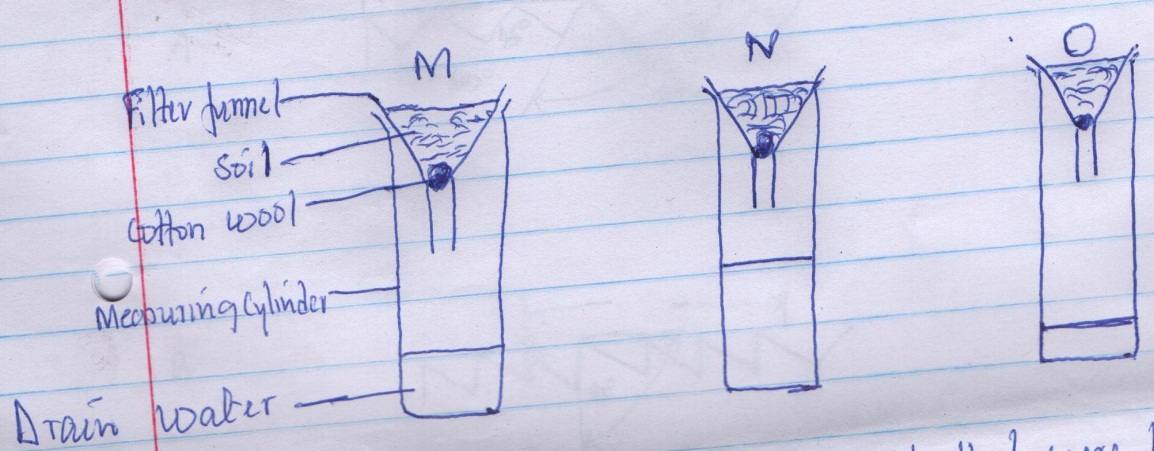 M
N
O
Filter funnel
Soil
Cotton wool
Measuring Cylinder
Drain water